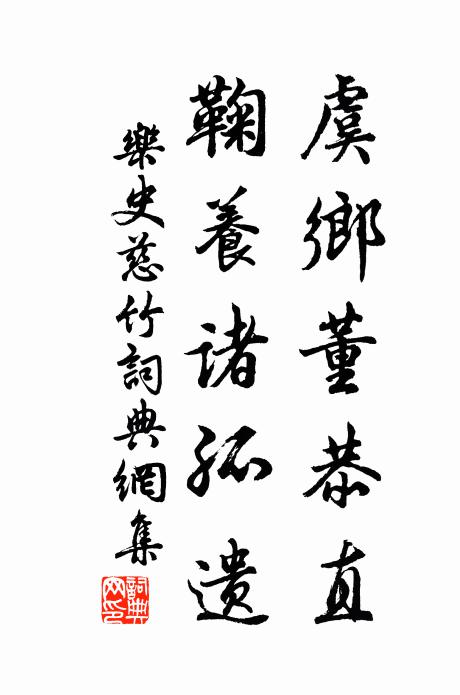 虞鄉董恭直
鞠養諸孤遺
樂史慈竹詞典網集
詞典网印